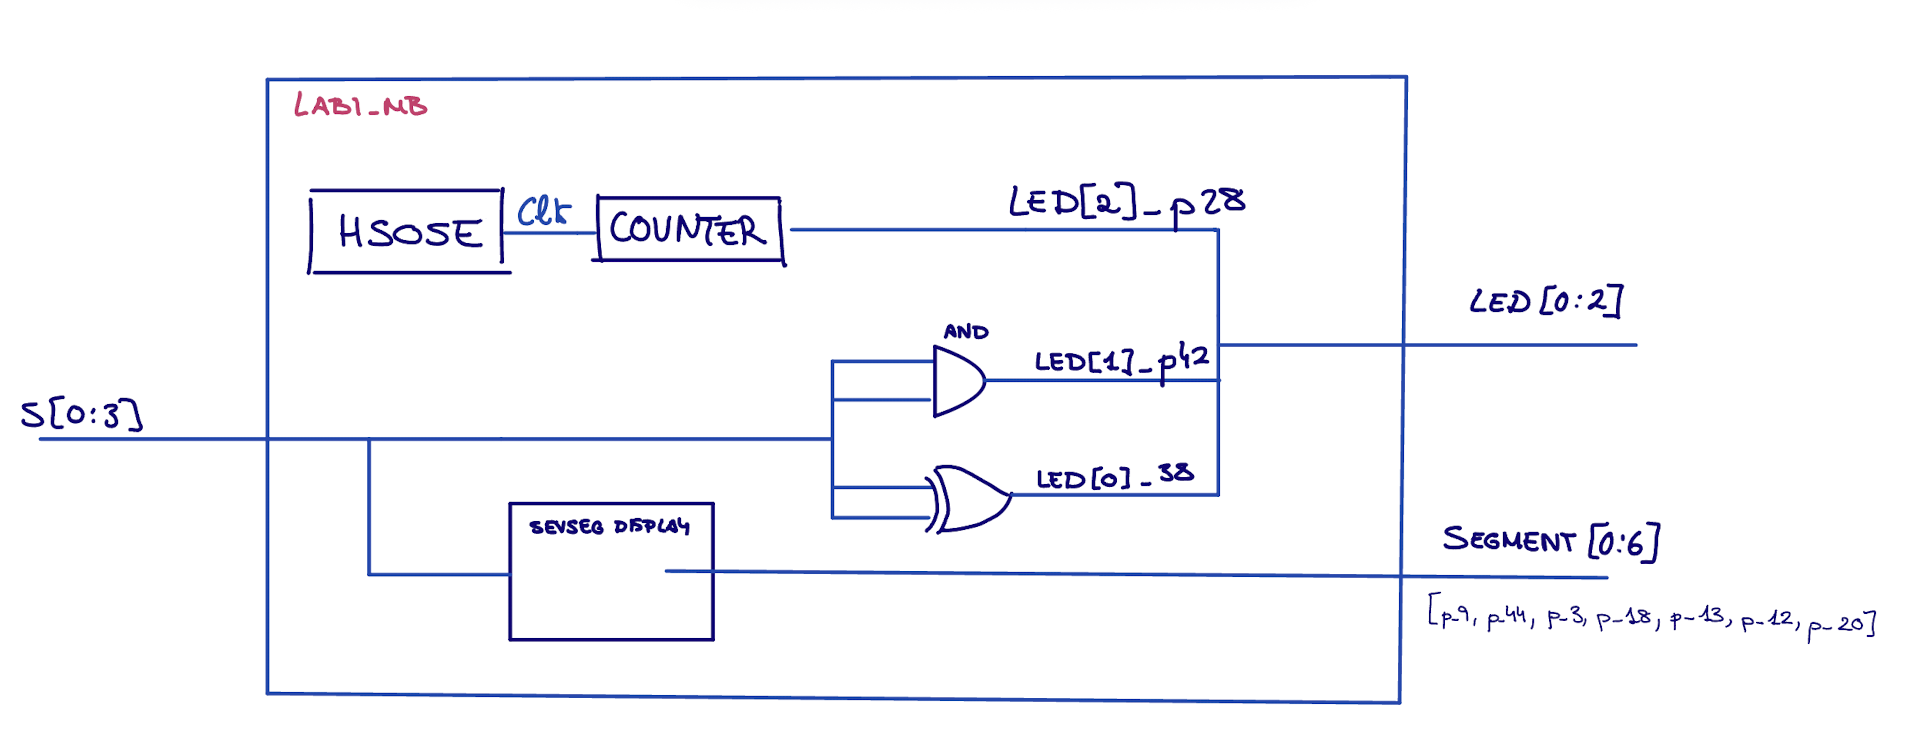 LAB1_MB
HSOSE
Clk
COUNTER
LED[2]_p28
AND
LED[1]_p42
LED[0:2]
S[0:3]
LED[0]_38
SEVSEG DISPLAY
SEGMENT [0:6]
[p-9, p-44, p-3, p-18, p-13, p-12, p-20]